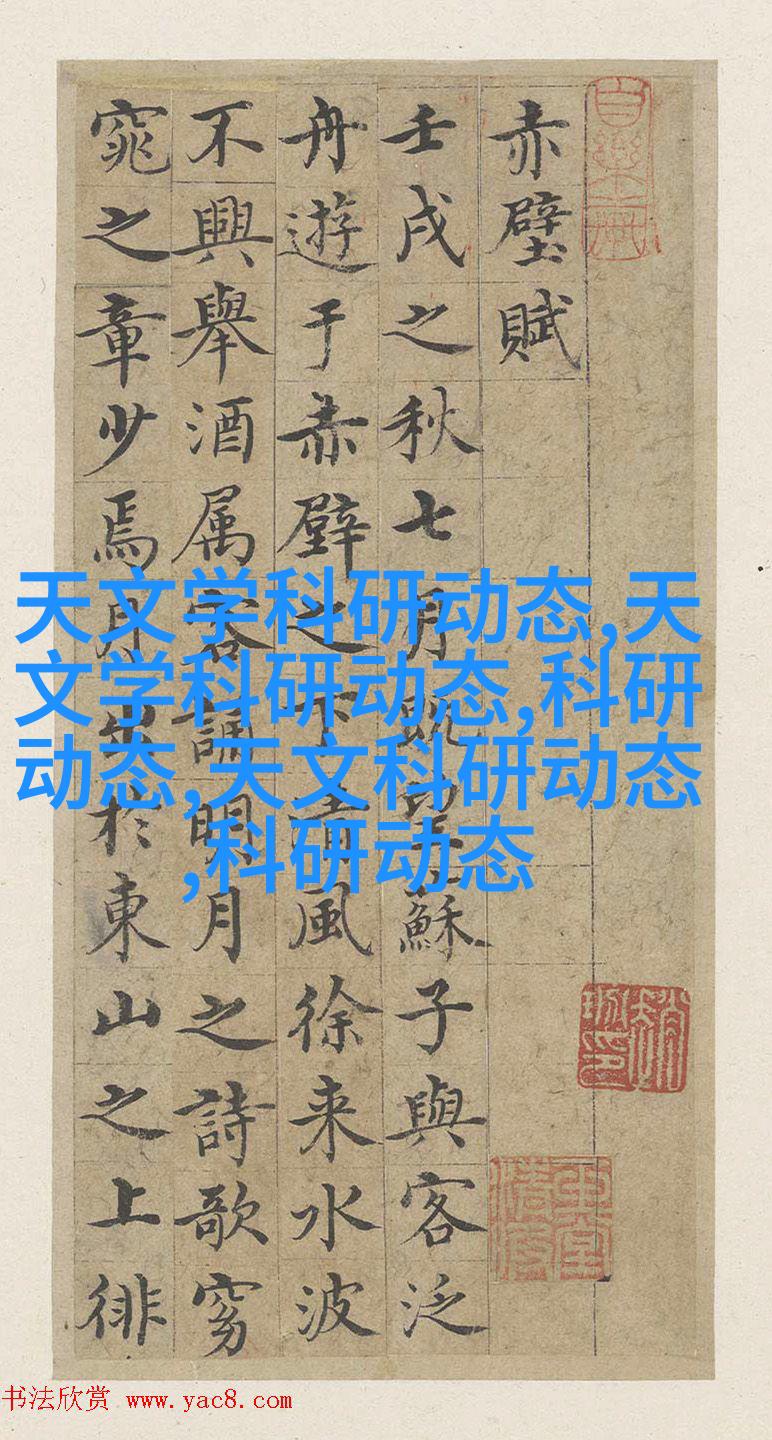 赤壁賦
壬戌之秋七月既望蘇子與客泛
舟遊于赤壁之下清風徐来水波
不興舉酒属客誦明月之詩歌窈
窕之章少焉月出於東山之上徘
天文学科研动态,天
文学科研动态,科研
动态,天文科研动态
,科研动态
书法欣赏 www.yac8.com